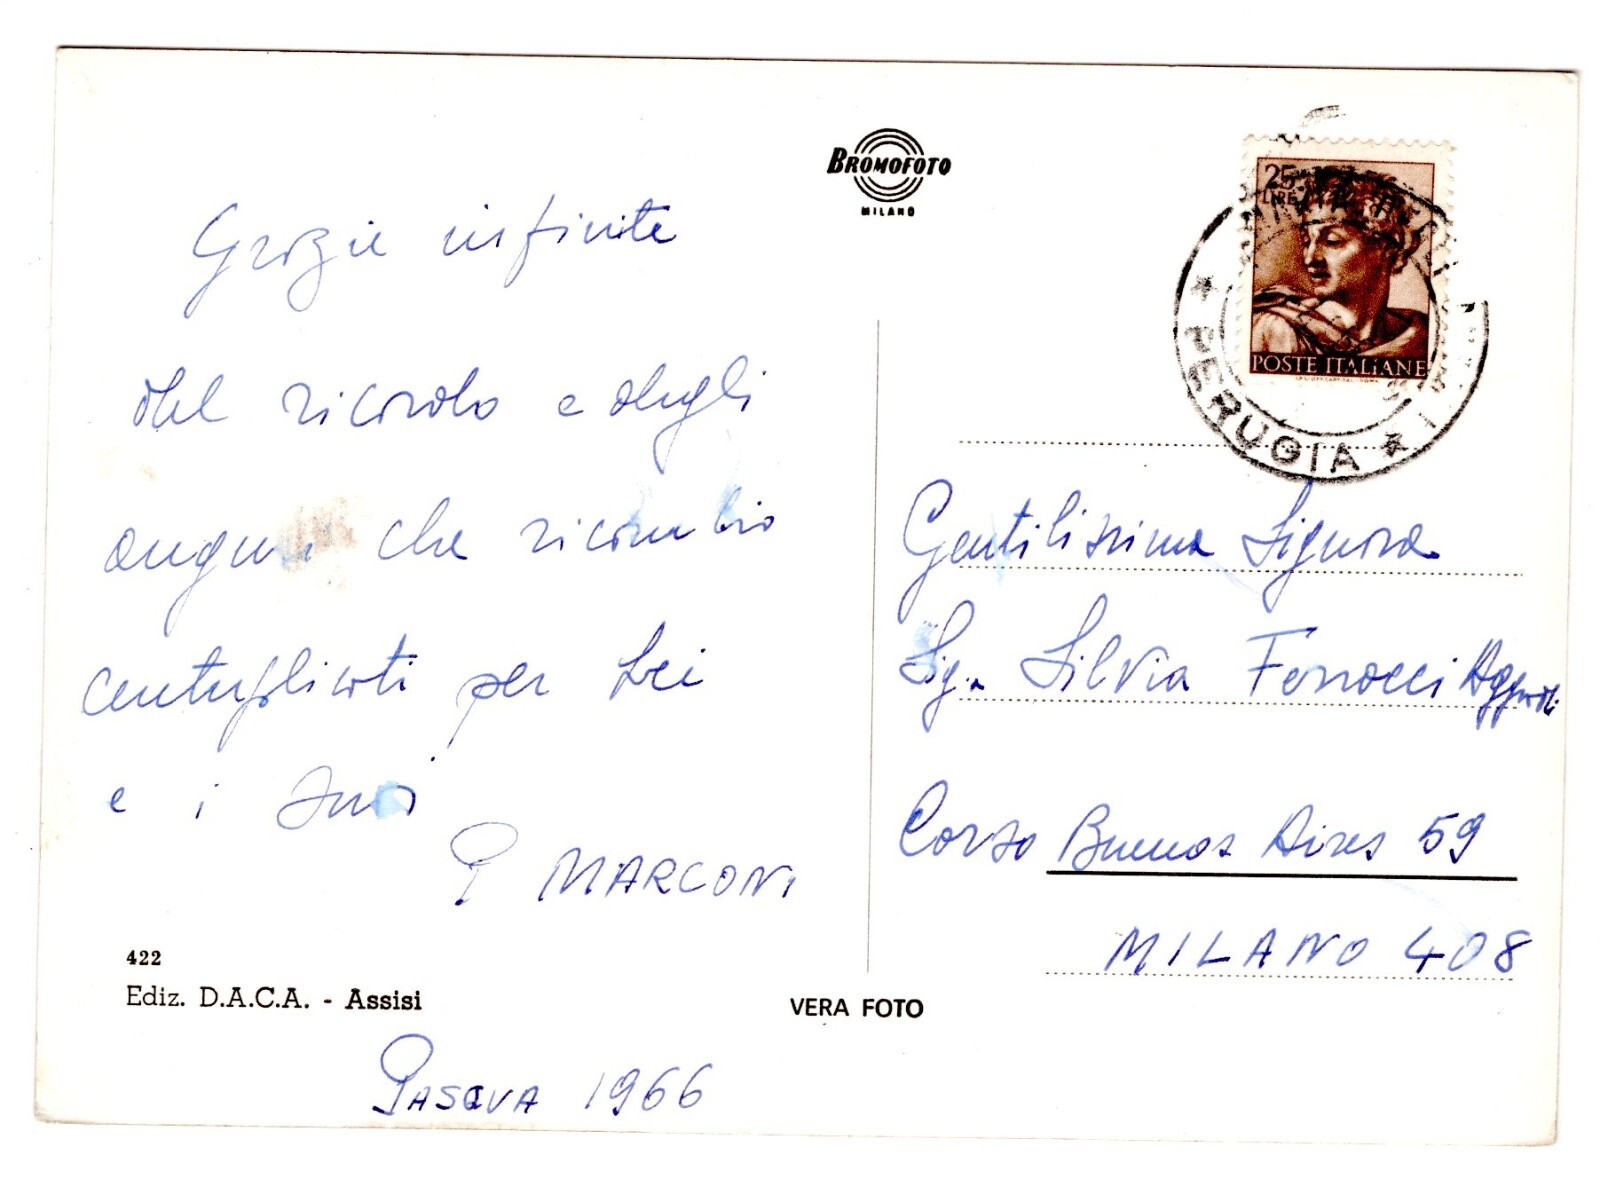 BROMOFOTO
MILANO
25
LIRE
POSTE ITALIANE
PERUGIA
Grazie infinite
del ricordo e degli
auguri che ricambio
centuplicati per Lei
e i Suoi
P MARCONI
422
Ediz. D.A.C.A. - Assisi
VERA FOTO
PASQUA 1966
Gentilissima Signora
Sig. Silvia Ferracci
Corso Buenos Aires 59
MILANO 408